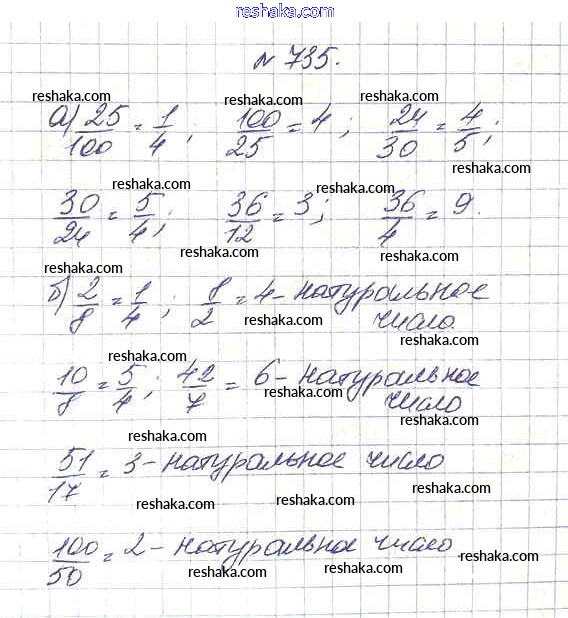 reshaka.com
№ 735.
reshaka.com reshaka.com
а) 25/100 = 1/4; 100/25 = 4; 24/30 = 4/5;
reshaka.com reshaka.com reshaka.com
30/24 = 5/4; 36/12 = 3; 36/4 = 9.
reshaka.com reshaka.com
б) 2/8 = 1/4; 8/2 = 4 - натуральное
reshaka.com число.
reshaka.com reshaka.com
10/8 = 5/4; 42/7 = 6 - натуральное
reshaka.com число
reshaka.com reshaka.com
51/17 = 3 - натуральное число
reshaka.com reshaka.com reshaka.com
100/50 = 2 - натуральное число
reshaka.com reshaka.com
reshaka.com reshaka.com